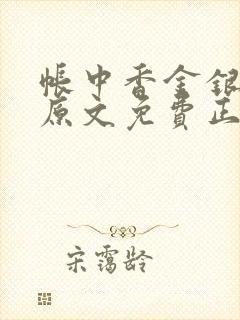 帐中香金银
原文免费正
宋霭龄